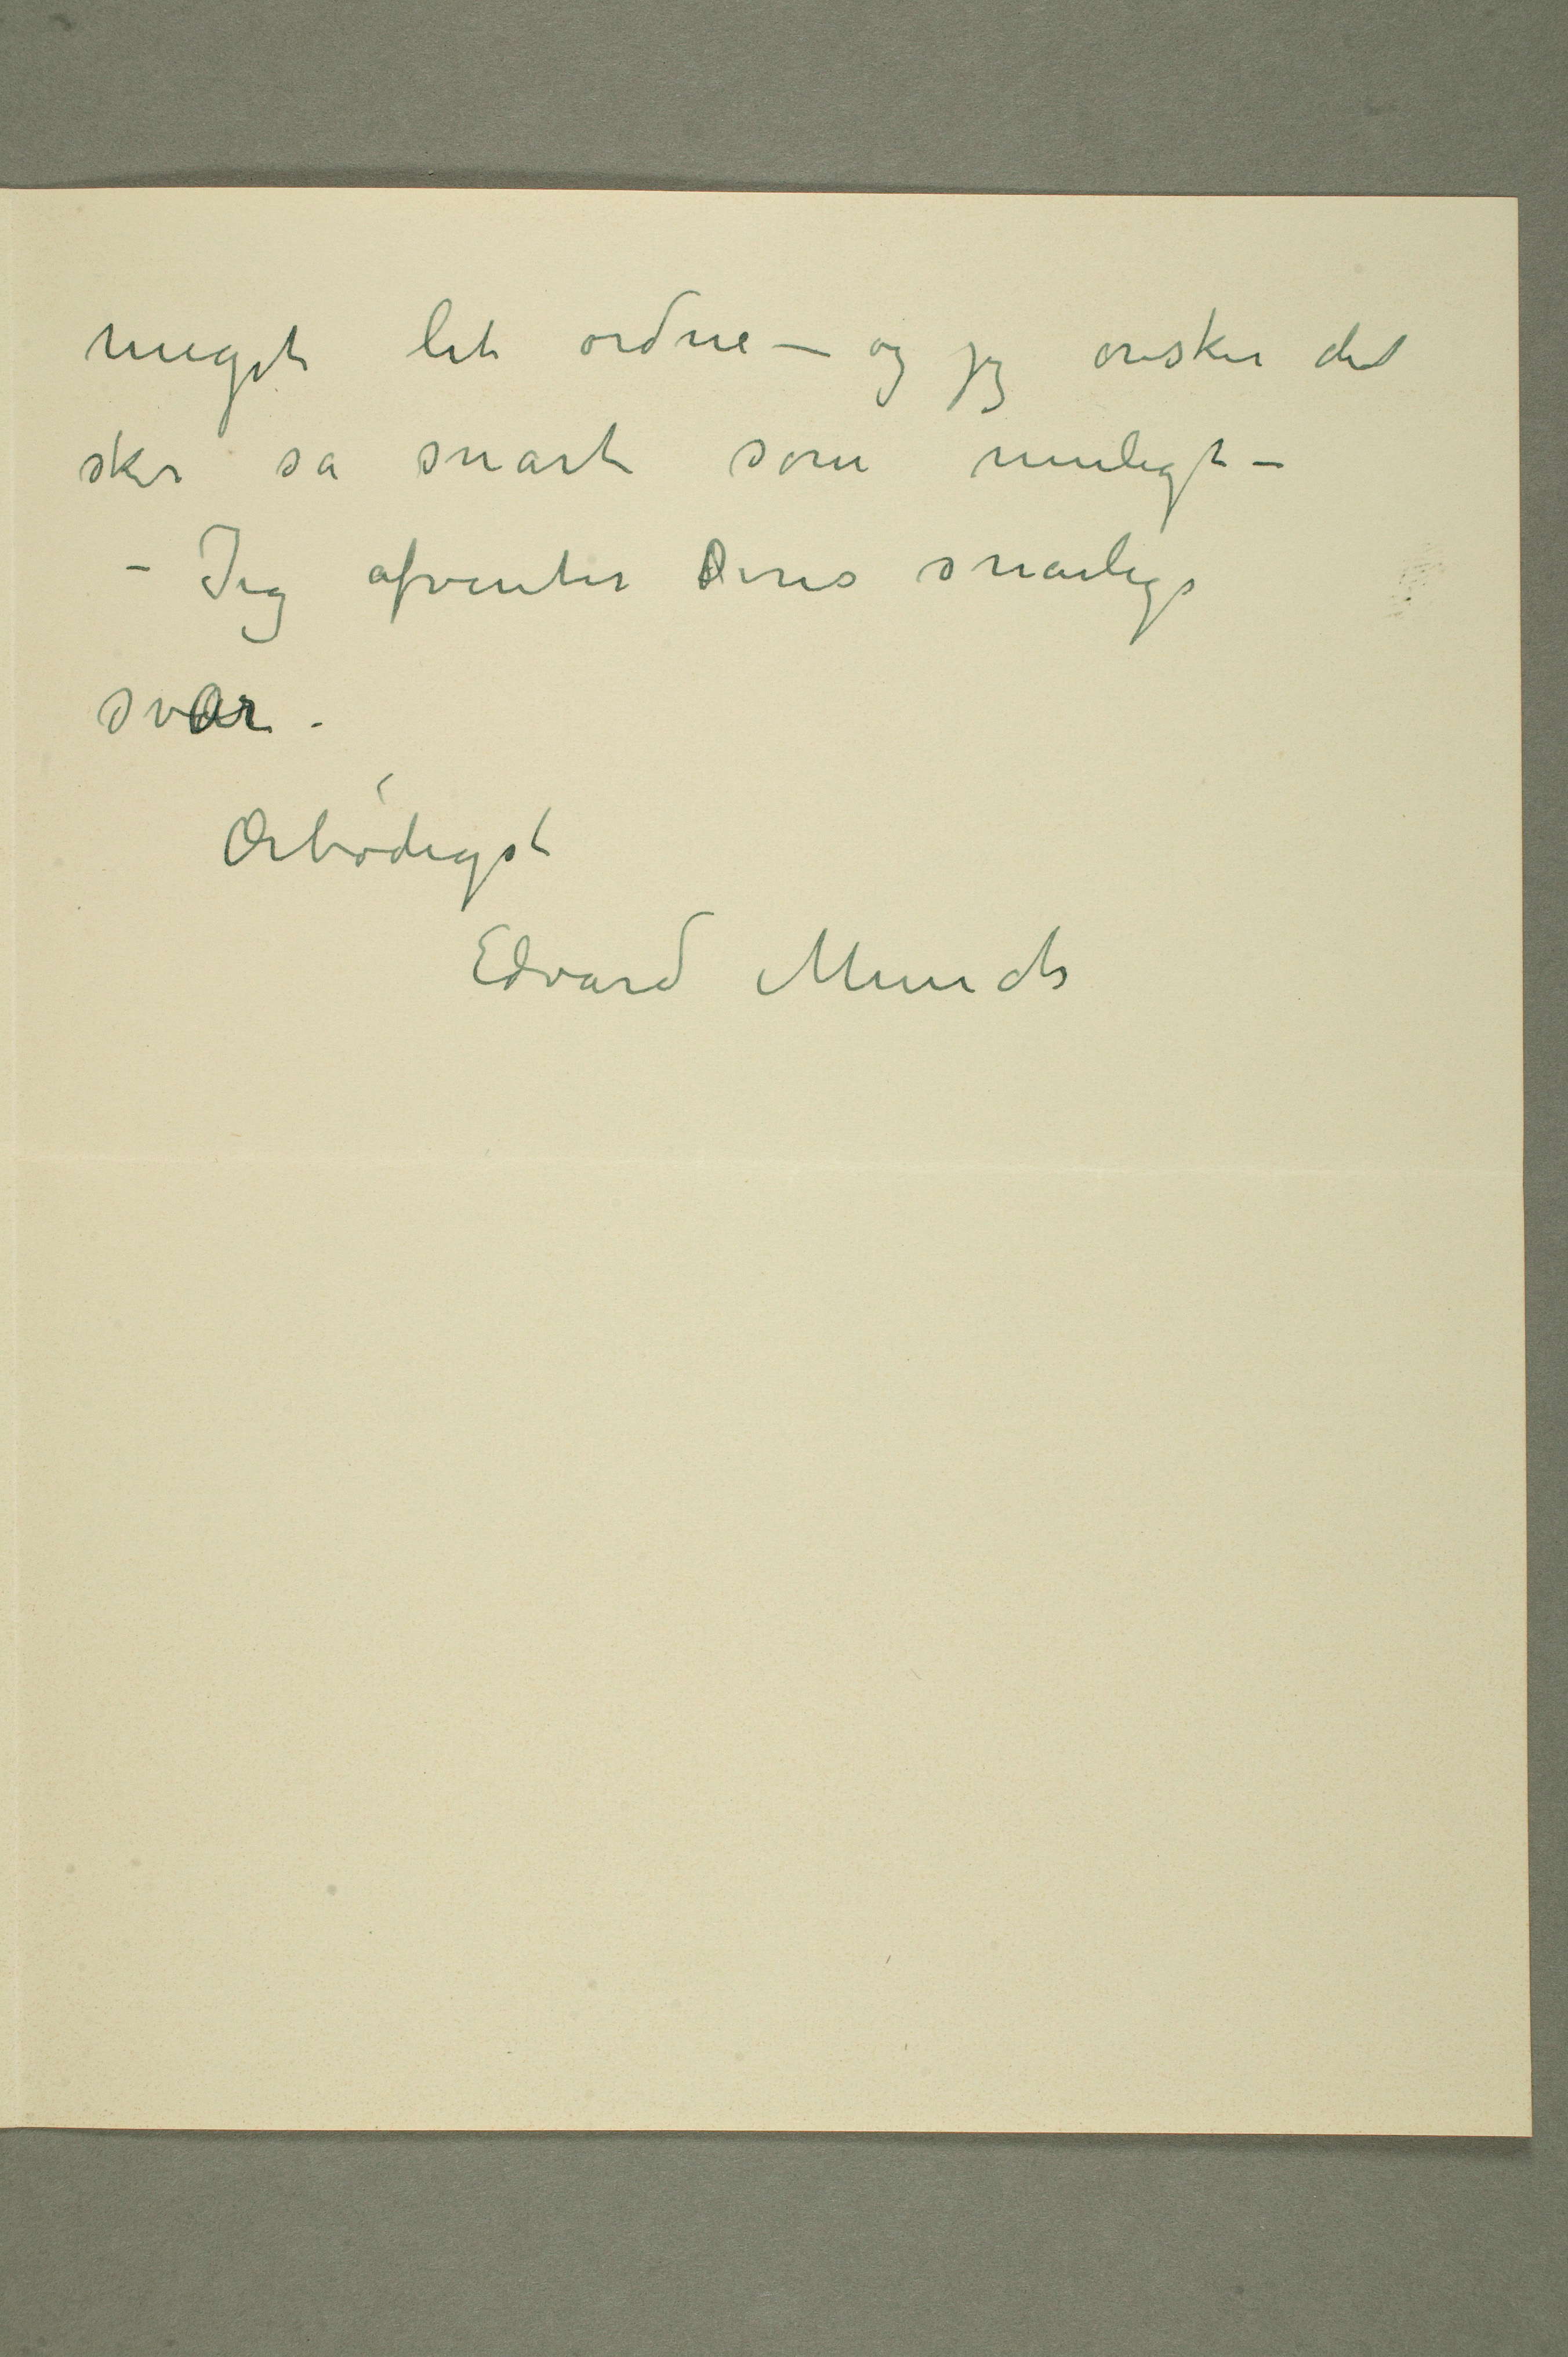 meget let ordne – og jeg ønsker det
sker så snart som muligt –
– Jeg afventer Deres snarlige
svar.
Ærbødigst
Edvard Munch